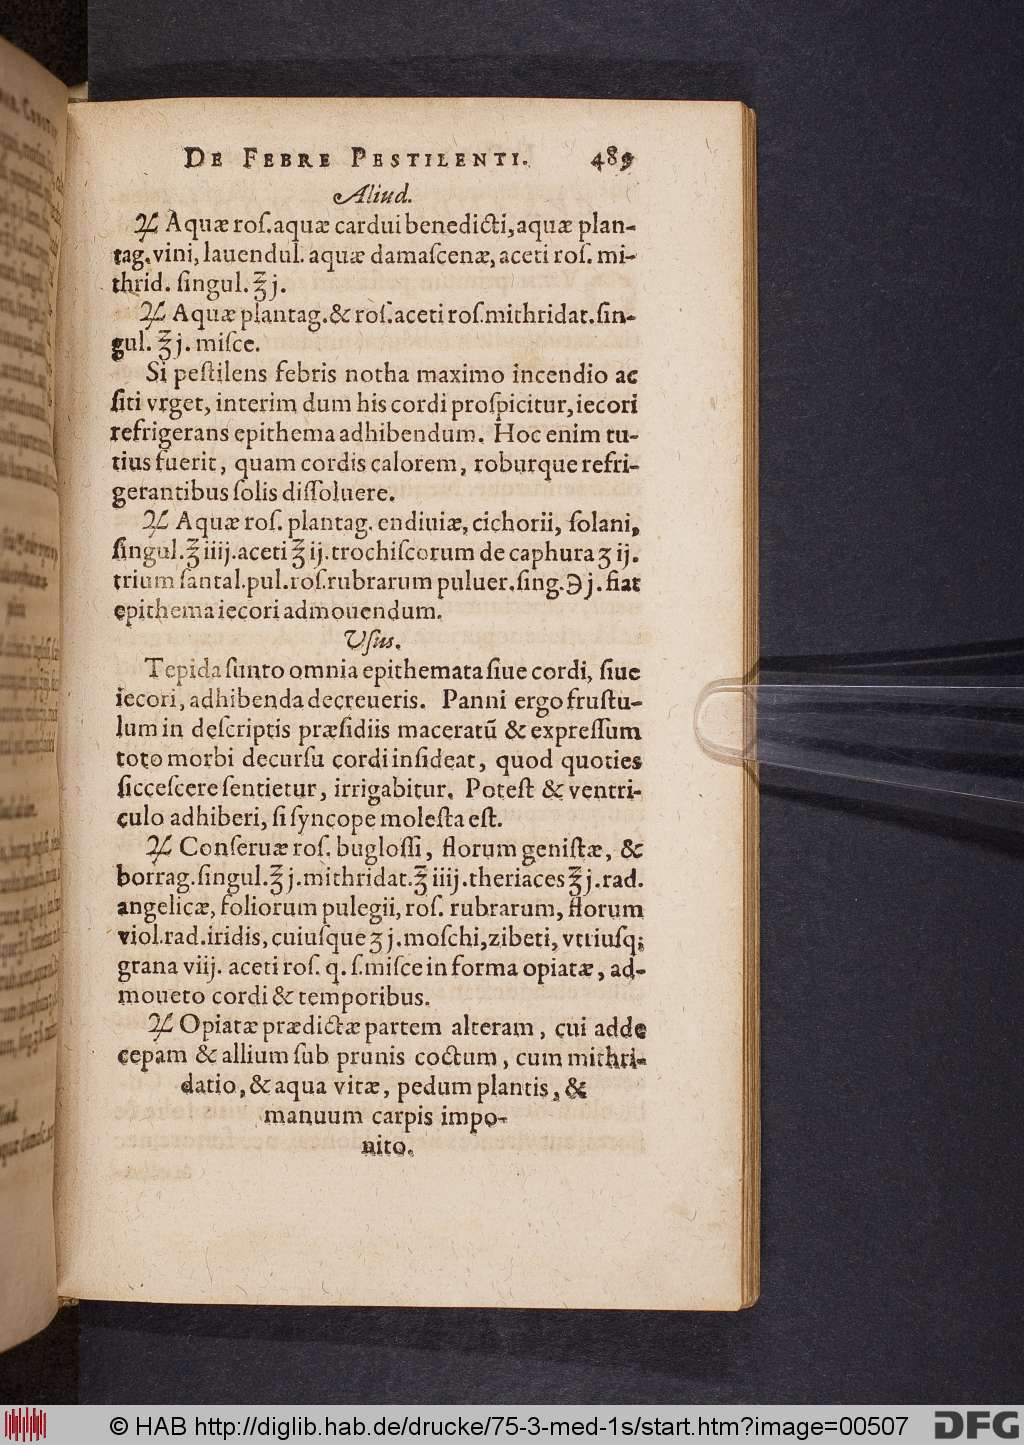 DE FEBRE PESTILENTI. 489
Aliud.
♃ Aquæ roſ. aquæ cardui benedicti, aquæ plan-
tag. vini, lauendul. aquæ damaſcenæ, aceti roſ. mi-
thrid. ſingul. ℥ j.
♃ Aquæ plantag. & roſ. aceti roſ. mithridat. ſin-
gul. ℥ j. miſce.
Si peſtilens febris notha maximo incendio ac
ſiti vrget, interim dum his cordi proſpicitur, iecori
refrigerans epithema adhibendum. Hoc enim tu-
tius fuerit, quam cordis calorem, roburque refri-
gerantibus ſolis diſſoluere.
♃ Aquæ roſ. plantag. endiuiæ, cichorii, ſolani,
ſingul. ℥ iiij. aceti ℥ ij. trochiſcorum de caphura ʒ ij.
trium ſantal. pul. roſ. rubrarum puluer. ſing. ℈ j. fiat
epithema iecori admouendum.
Vſus.
Tepida ſunto omnia epithemata ſiue cordi, ſiue
iecori, adhibenda decreueris. Panni ergo fruſtu-
lum in deſcriptis præſidiis maceratū & expreſſum
toto morbi decurſu cordi inſideat, quod quoties
ſicceſcere ſentietur, irrigabitur. Poteſt & ventri-
culo adhiberi, ſi ſyncope moleſta eſt.
♃ Conſeruæ roſ. bugloſſi, florum geniſtæ, &
borrag. ſingul. ℥ j. mithridat. ℥ iiij. theriaces ℥ j. rad.
angelicæ, foliorum pulegii, roſ. rubrarum, florum
viol. rad. iridis, cuiuſque ʒ j. moſchi, zibeti, vtriuſq;
grana viij. aceti roſ. q. ſ. miſce in forma opiatæ, ad-
moueto cordi & temporibus.
♃ Opiatæ prædictæ partem alteram, cui adde
cepam & allium ſub prunis coctum, cum mithri-
datio, & aqua vitæ, pedum plantis, &
manuum carpis impo-
nito.
© HAB http://diglib.hab.de/drucke/75-3-med-1s/start.htm?image=00507
DFG